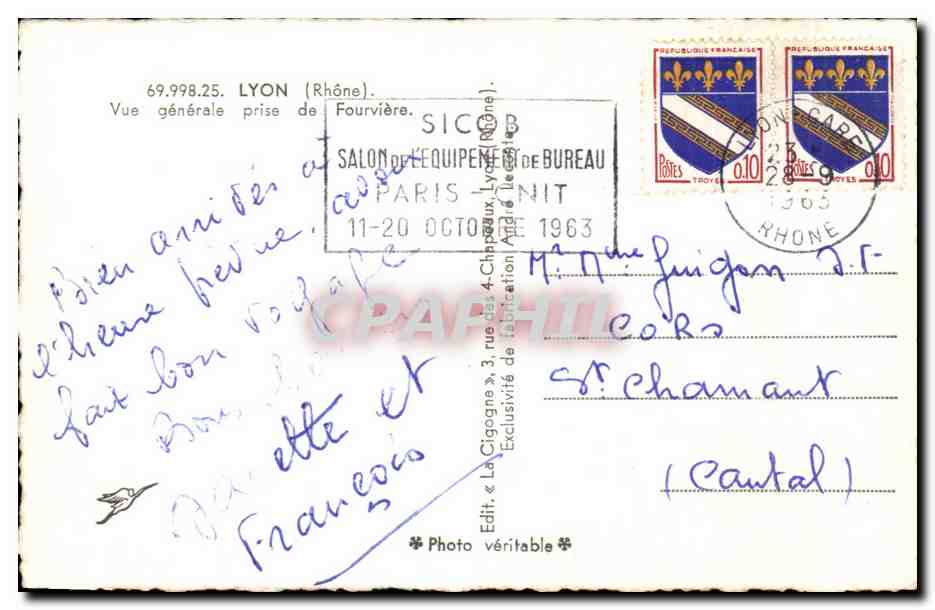 69.998.25. LYON (Rhône).
Vue générale prise de Fourvière.
SICOB
SALON DE L'EQUIPEMENT DE BUREAU
PARIS - CNIT
11-20 OCTOBRE 1963
REPUBLIQUE FRANCAISE
POSTES 0,10
TROYES
REPUBLIQUE FRANCAISE
POSTES 0,10
TROYES
LYON GARE
23
28-9
1963
RHONE
Bien arrivés à
l'heure prévue, assez
fait bon voyage
Bons
ette et
François
Mr Mme Guigon J.
Cors
St. Chamant
(Cantal)
Edit. « La Cigogne », 3, rue des 4-Chapeaux, Lyon (Rhône).
Exclusivité de fabrication André
Photo véritable
CPAPHIL